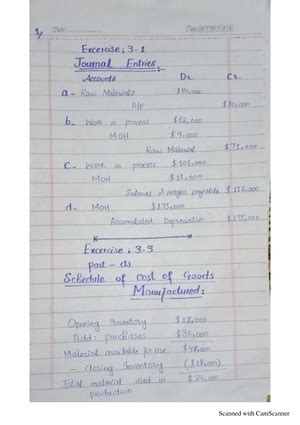 Date:
Excercise; 3-1
Journal Entries:-
Accounts Dr. Cr.
a- Raw Materials $80,000
A/P $80,000
b. Work in process $62,000
MOH $9,000
Raw Material $71,000
C. Work in process $101,000
MOH $11,000
Salaries & wages payable $112,000
d. MOH $175,000
Accumulated Depreciation $175,000
Excercise; 3-3
part - (1)
Schedule of Cost of Goods
Manufactured:
Opening Inventory
Add: purchases $30,000
Material available for use
- Closing Inventory ($18,000)
Total material used in
production
Scanned with CamScanner